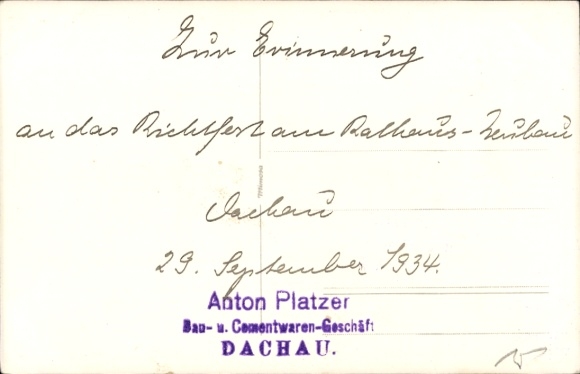 Zur Erinnerung
an das Richtfest am Rathaus-Neubau
Dachau
29. September 1934.
Anton Platzer
Bau- u. Cementwaren-Geschäft
DACHAU.